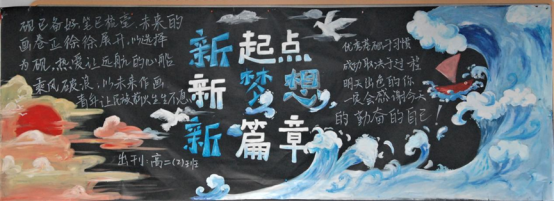 砚已备好，笔已蘸瓷，未来的
画卷正徐徐展开，以选择
为砚，热爱让远航的心船
乘风破浪，以未来作画
青年让民族薪火生生不息
新起点
新梦想
新篇章
优秀落砌于习惯
成功取决于过程
明天出色的你
一定会感谢今天
的勤奋的自己！
出刊：高二（2）班